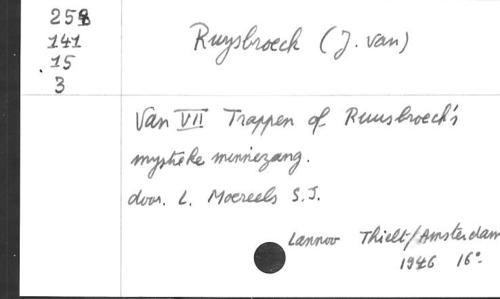 258
141
15
3
Ruysbroeck (J. van)
Van VII Trappen of Ruusbroeck's
mystieke minnezang.
door. L. Moereels S.J.
Lannoo Thielt/Amsterdam
1946 16°